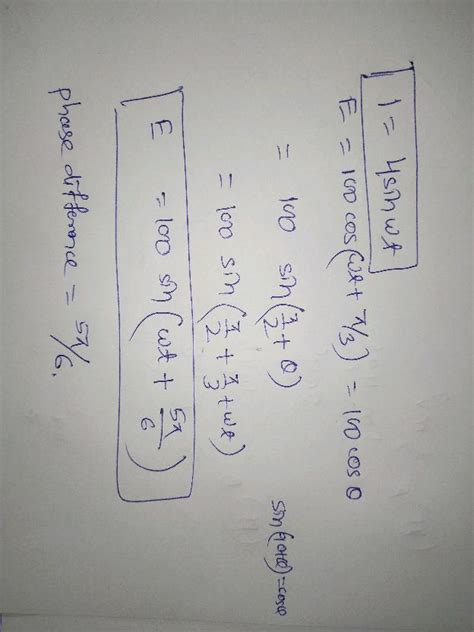 I = 4sinωt
E = 100 cos(ωt + π/3) = 100 cosθ
= 100 sin(π/2 + θ)
sin(90+θ) = cosθ
= 100 sin(π/2 + π/3 + ωt)
E = 100 sin(ωt + 5π/6)
phase difference = 5π/6.